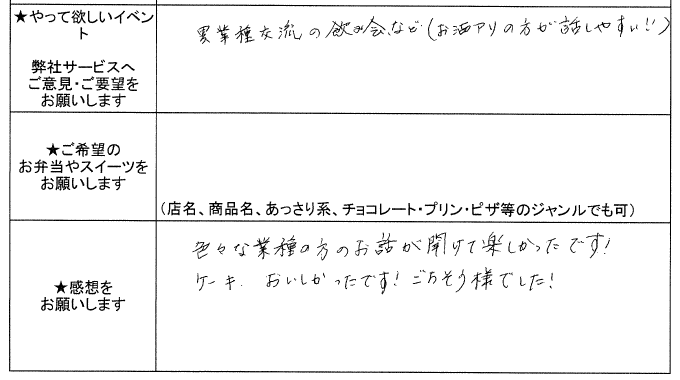 ★やって欲しいイベン
ト
弊社サービスへ
ご意見・ご要望を
お願いします
異業種交流の飲み会など(お酒アリの方が話しやすい!!)
★ご希望の
お弁当やスイーツを
お願いします
(店名、商品名、あっさり系、チョコレート・プリン・ピザ等のジャンルでも可)
★感想を
お願いします
色々な業種の方のお話が聞けて楽しかったです!
ケーキ おいしかったです!ごちそう様でした!